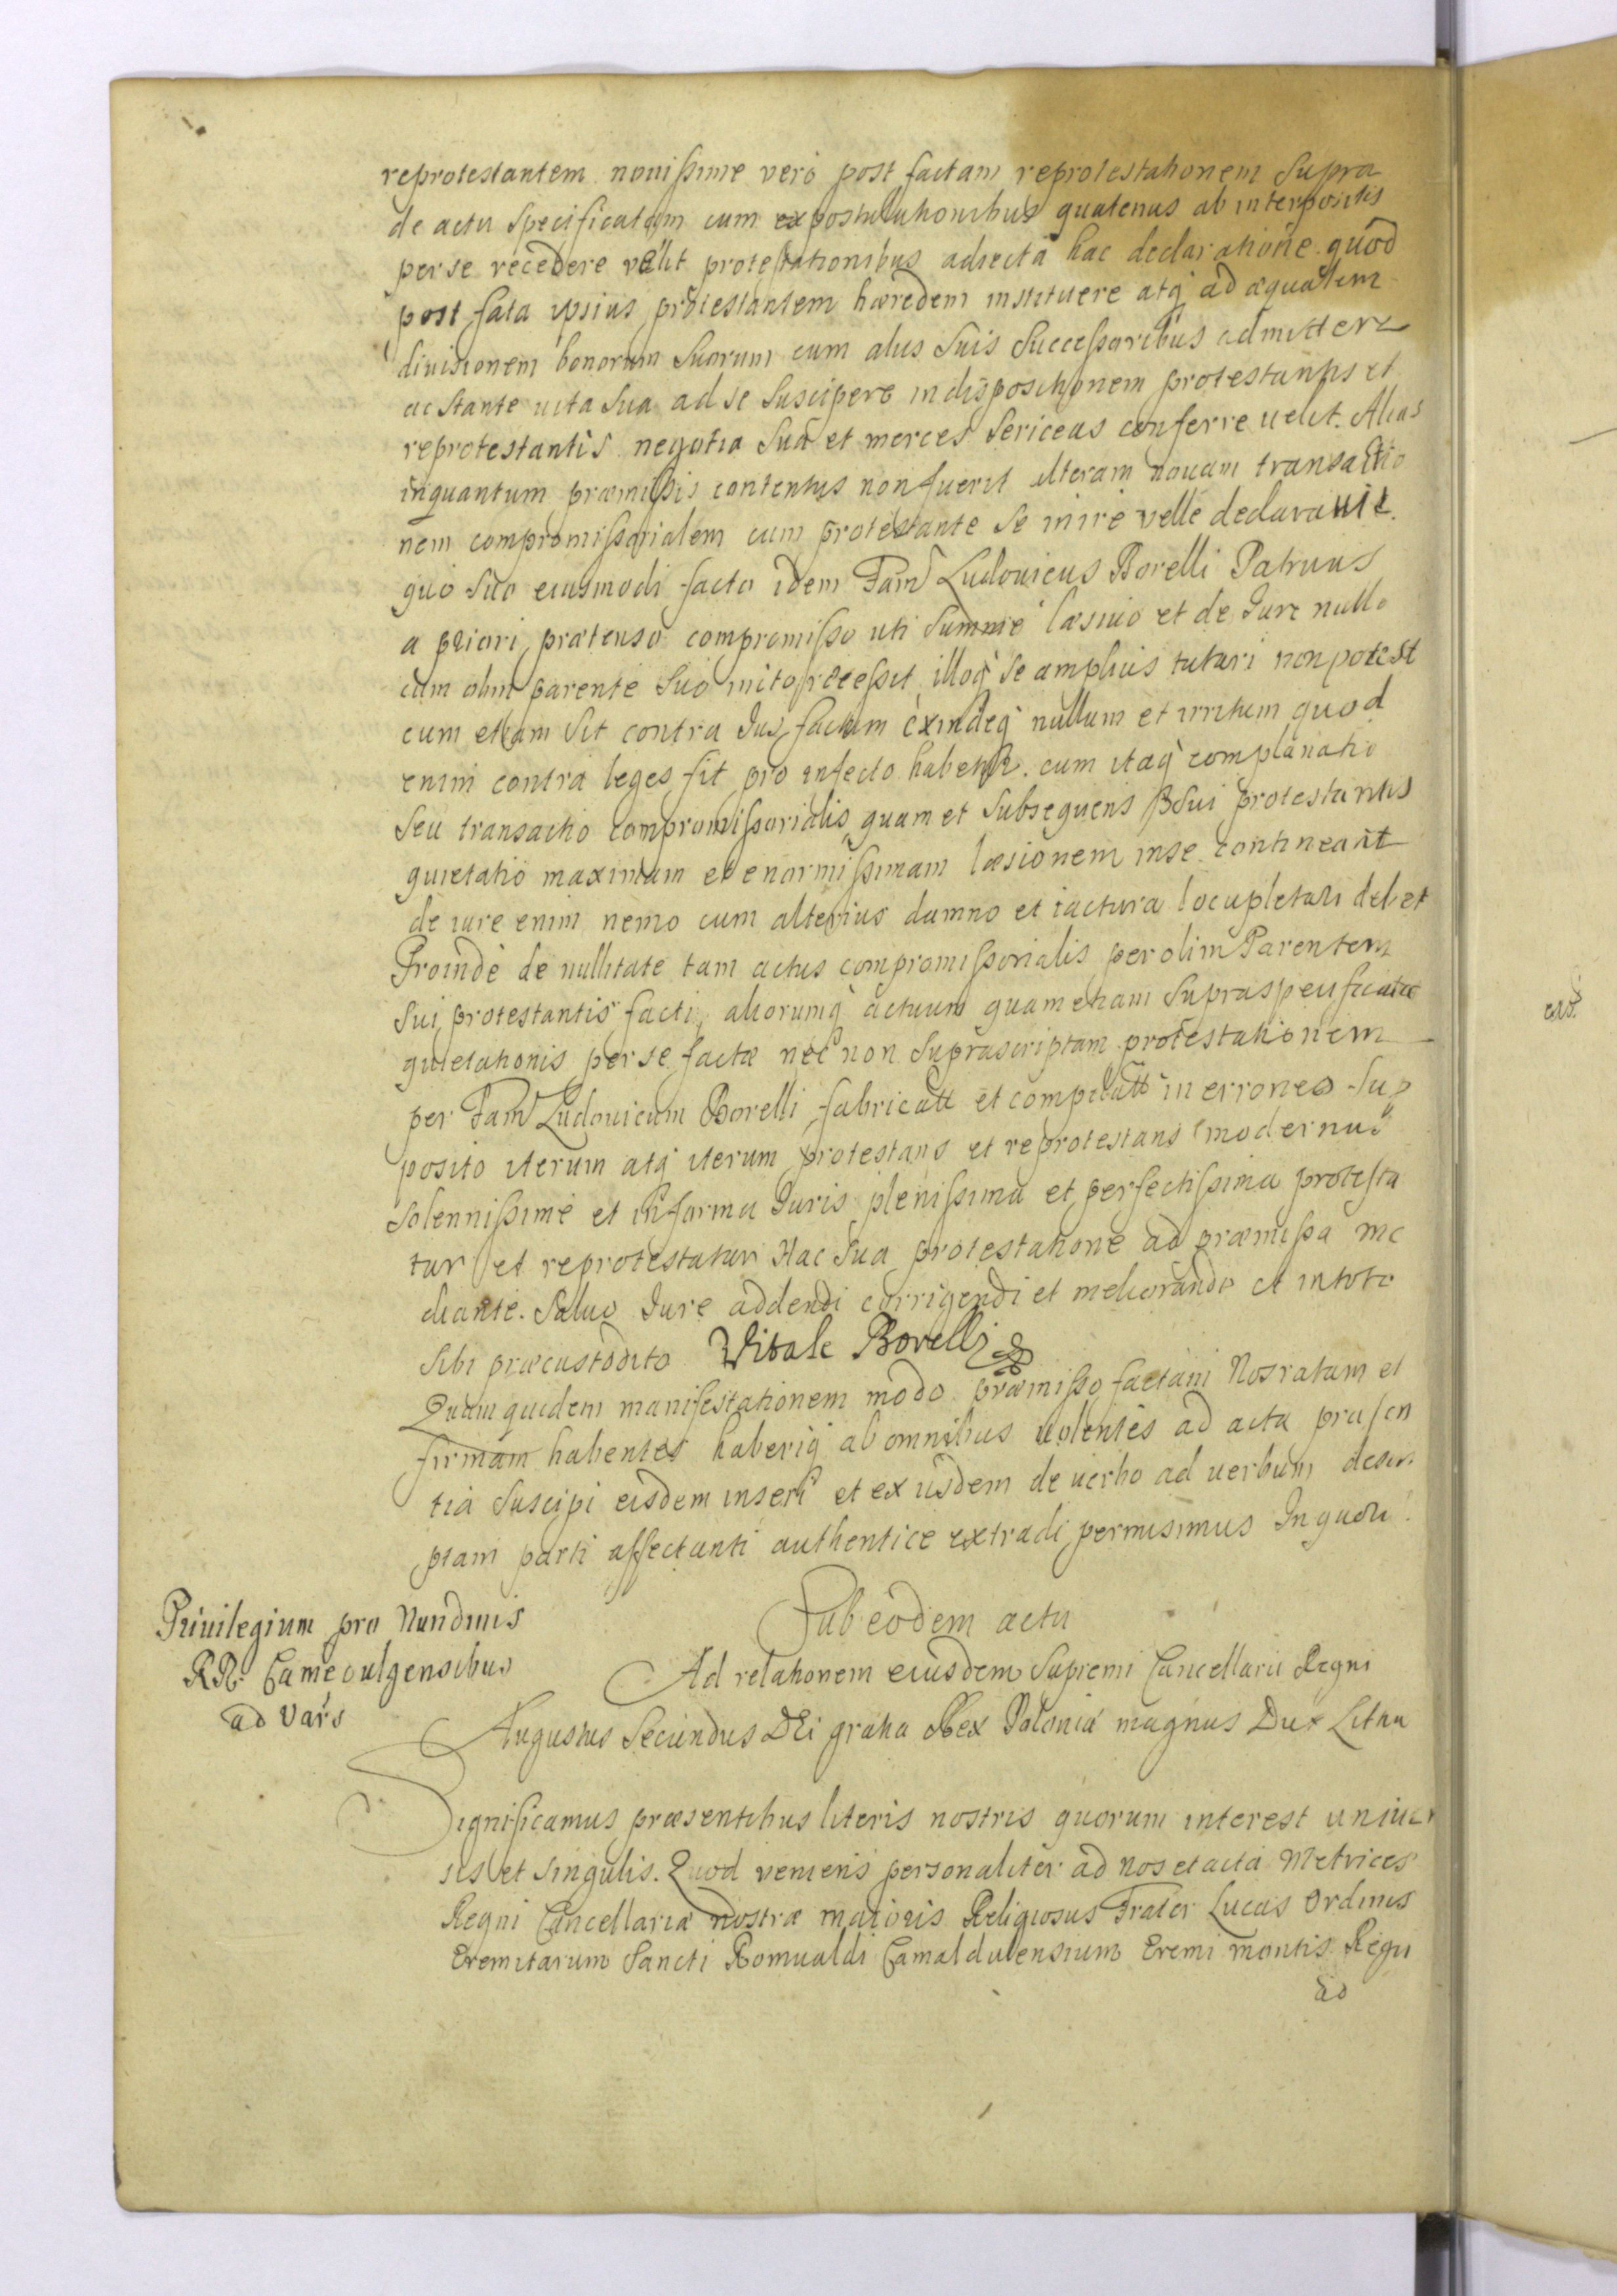 reprotestantem novissime verò post factam reprotestationem supra
de actu specificatam cum expostulationibus quatenus ab interpositis
per se recedere velit protestationibus adiecta hac declaratione quod
post fata ipsius protestantem hæredem instituere atq̀ ad æqualem
divisionem bonorum suorum cum aliis suis successoribus admittere
ac stante vita sua ad se suscipere in dispositionem protestantis et
reprotestantis negotia sua et merces sericeas conferre velit. Alias
inquantum præmissis contentus non fuerit alteram novam transactio
nem compromissorialem cum protestante se inire velle declaravit.
quo suo eiusmodi facto idem Fam̃ Ludovicus Borelli Patruus
a priori prætenso compromisso uti summè læsivo et de Jure nullo
cum olim parente suo inito recessit, illoq̀ se amplius tutari non potest
cum etiam sit contra Jus factum exindeq̀ nullum et irritum quod
enim contra leges fit pro infecto habetur. cum itaq̀ complanatio
seu transactio compromissorialis quam et subsequens sui protestantis
quietatio maximam et enormissimam læsionem in se contineant
de iure enim nemo cum alterius damno et iactura locupletari debet
Proindè de nullitate tam actus compromissorialis per olim Parentem
sui protestantis facti, aliorumq̀ actuum quam etiam supraspecificatæ
quietationis per se factæ nec non suprascriptam protestationem
per Fam̃ Ludovicum Borelli fabricatt et compilatt in erroneo sup
posito iterum atq̀ iterum protestans et reprotestans modernus
solennissimè et in forma Juris plenissima et perfectissima protesta
tur et reprotestatur Hac sua protestatione ad præmissa me
diante. Salvo Jure addendi corrigendi et meliorandi et in toto
sibi præcustodito Vitale Borelli
Quam quidem manifestationem modo præmisso factam Nos ratam et
firmam habentes haberiq̀ ab omnibus volentes ad acta præsen
tia suscipi eisdem inseri et ex iisdem de verbo ad verbum descri
ptam parti affectanti authentice extradi permisimus In quoru.
Sub eodem actu
Privilegium pro Nundinis
RR. Camedulgensibus
ad Vars
Ad relationem eiusdem Supremi Cancellarii Regni
Augustus Secundus DEi gratia Rex Poloniæ magnus Dux Lithu
Significamus præsentibus literis nostris quorum interest univer
sis et singulis. Quod veniens personaliter ad nos et acta Metrices
Regni Cancellariæ nostræ maioris Religiosus Frater Lucas Ordinis
Eremitarum Sancti Romualdi Camaldulensium Eremi montis Regii
ad